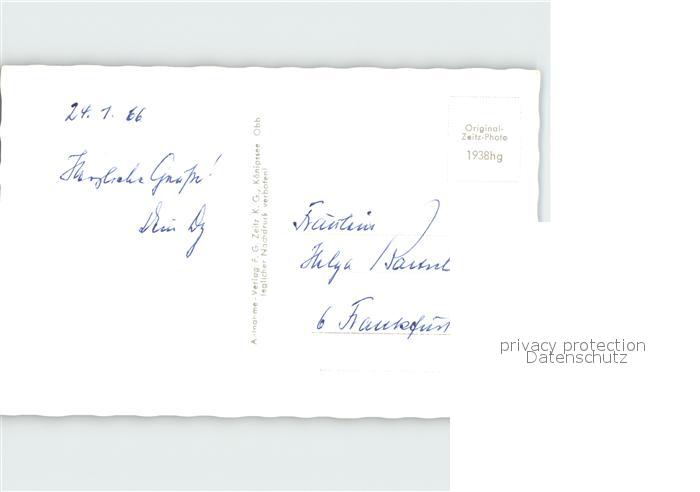 24. 1. 66
Herzliche Grüße!
Dein
Aufnahme-Verlag F. G. Zeitz K. G., Königssee Obb
Jeglicher Nachdruck verboten!
Original-
Zeitz-Photo
1938hg
Fräulein
Helga Bartsch
6 Frankfurt
privacy protection
Datenschutz